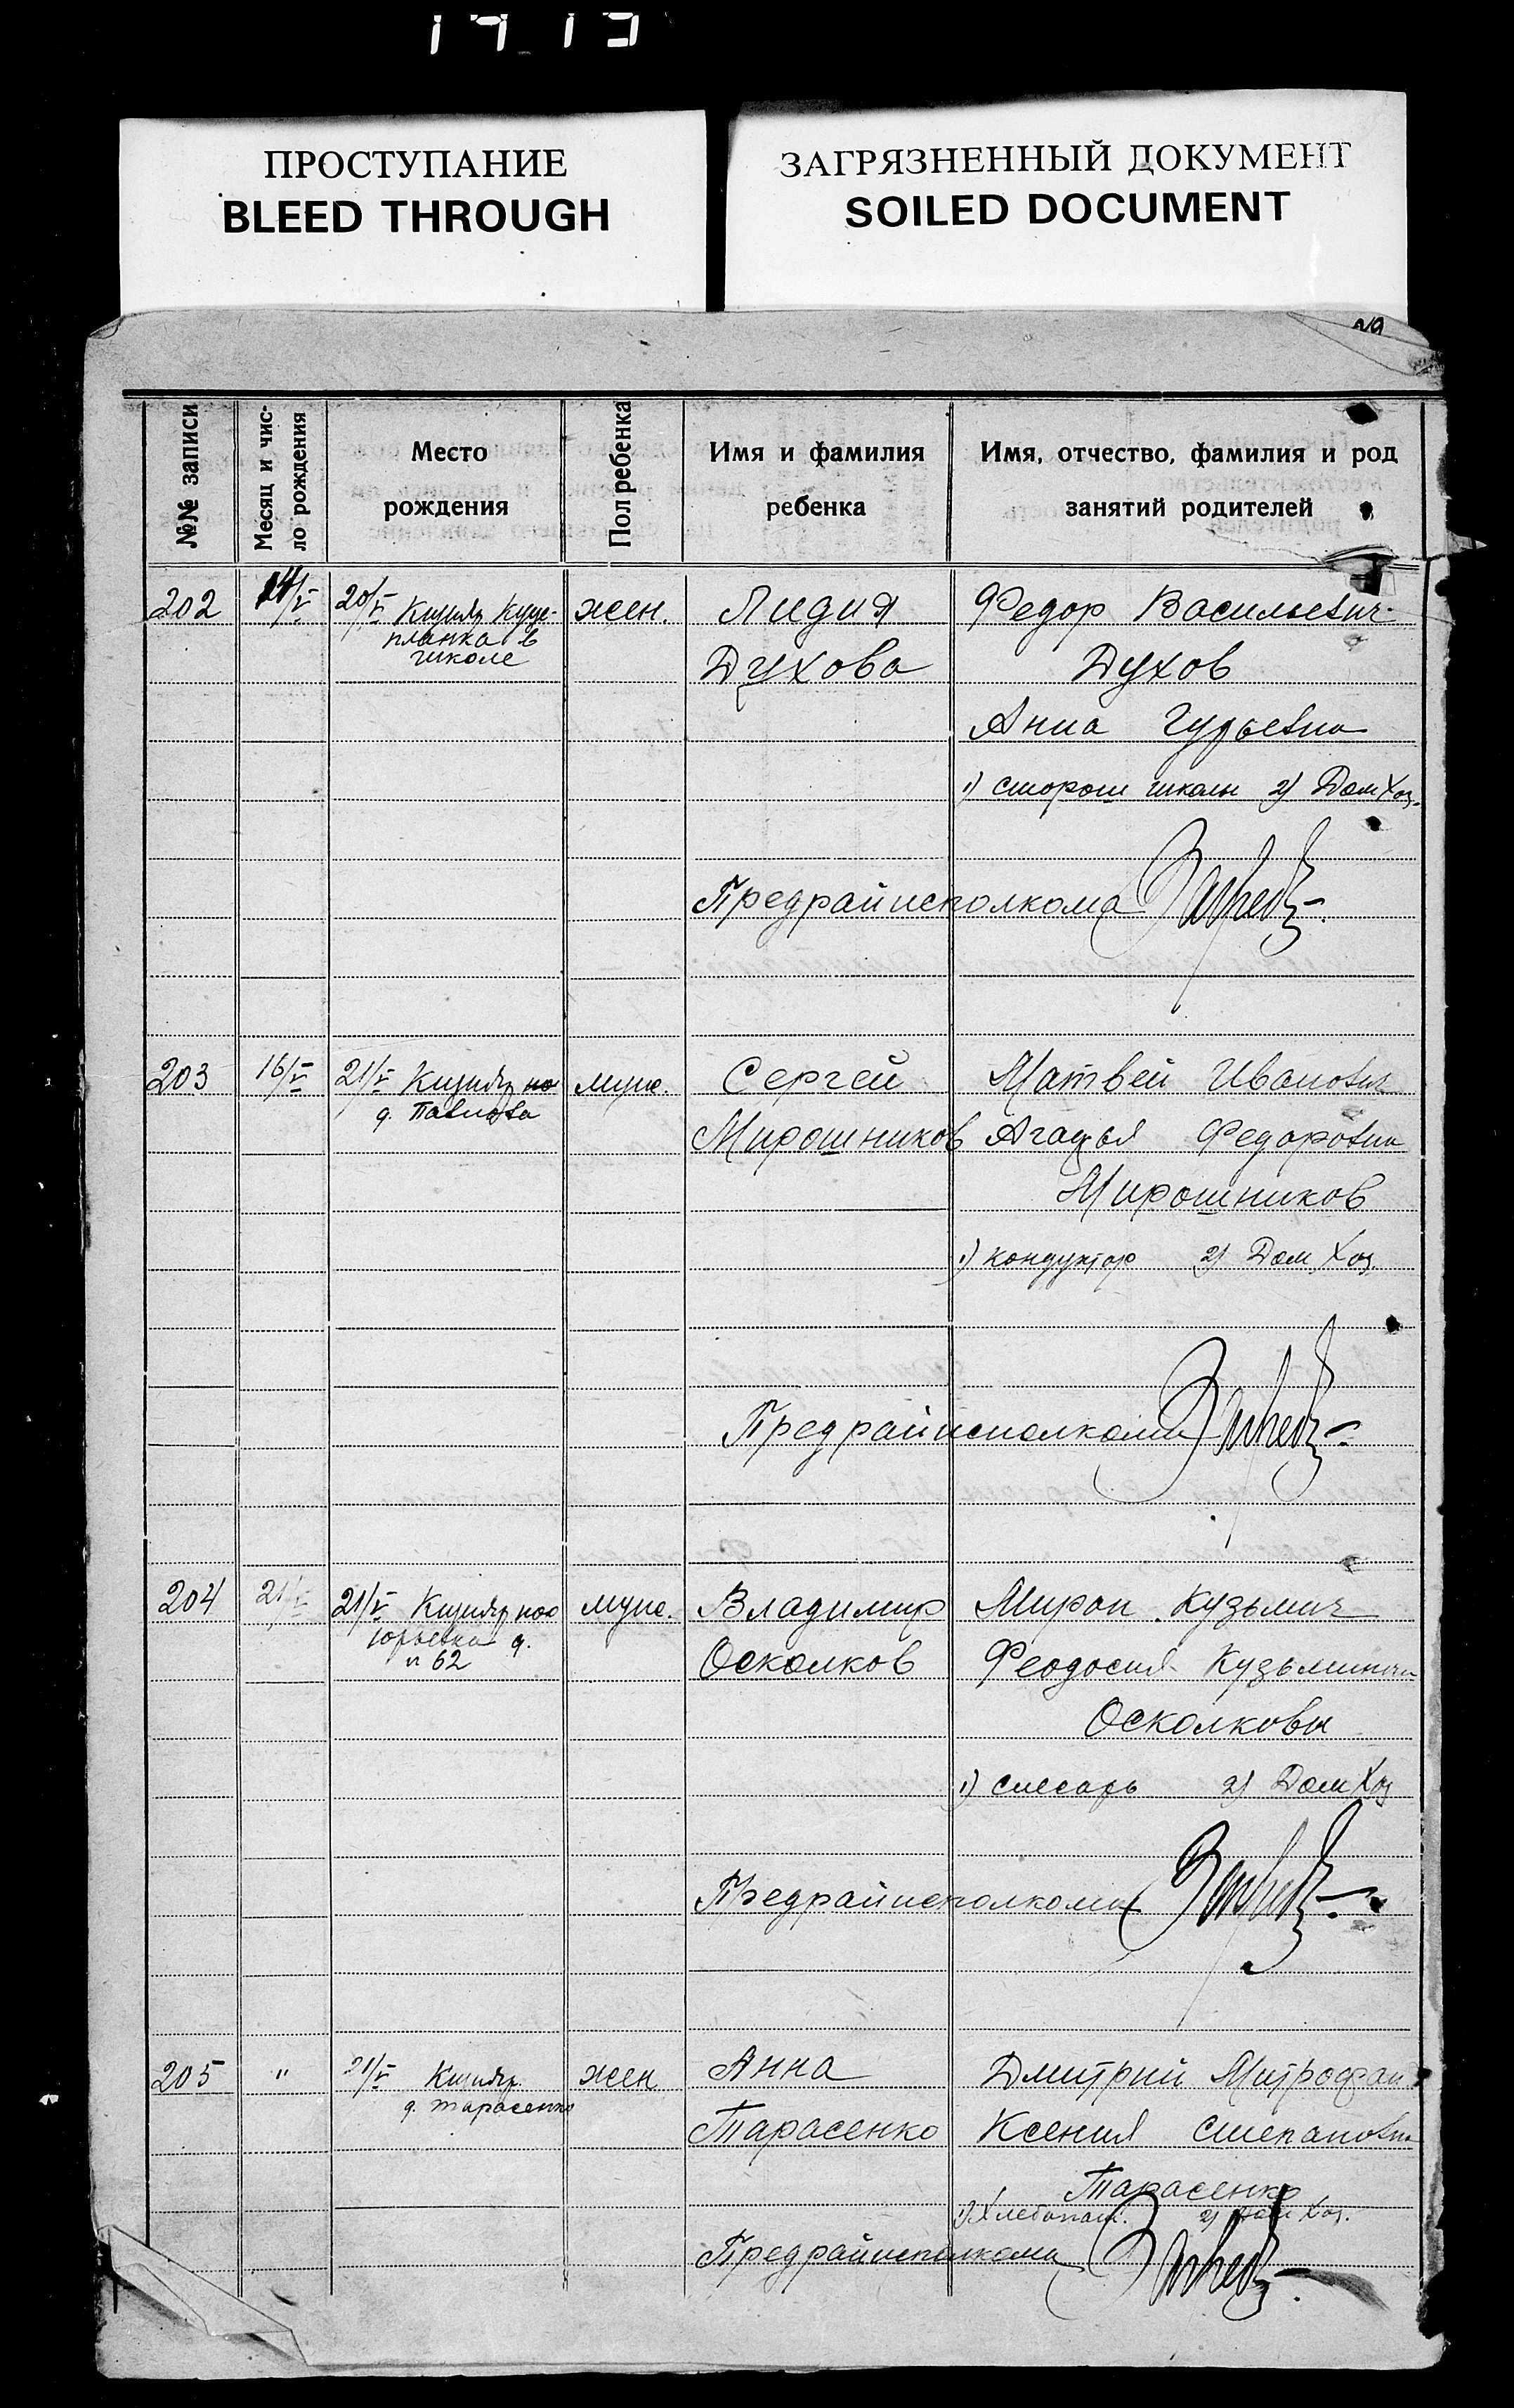 ПРОСТУПАНИЕ
BLEED THROUGH
ЗАГРЯЗНЕННЫЙ ДОКУМЕНТ
SOILED DOCUMENT
29
№№ записи
Месяц и чис-
ло рождения
Место
рождения
Пол ребенка
Имя и фамилия
ребенка
Имя, отчество, фамилия и род
занятий родителей
202 14/V 20/V Кизляр жен. Лидия Федор Васильевич
планка в
школе
Духова Духов
Анна Гурьевна
1) сторож школы 2) Дом Хоз.
Предрайисполкома
203 16/V 21/V Кизляр муж. Сергей Матвей Иванович
д. Павлова
Мирошников Агафья Федоровна
Мирошников
1) кондуктор 2) Дом. Хоз.
Предрайисполкома
204 21/V 21/V Кизляр муж. Владимир Мирон Кузьмич
д.
№ 62
Осколков Феодосия Кузьминична
Осколковы
1) слесарь 2) Дом Хоз
Предрайисполкома
205 " 21/V Кизляр. жен Анна Дмитрий Митрофан
д. Тарасенко
Тарасенко Ксения Степановна
Тарасенко
1) Хлебопаш. 2) Дом Хоз.
Предрайисполкома